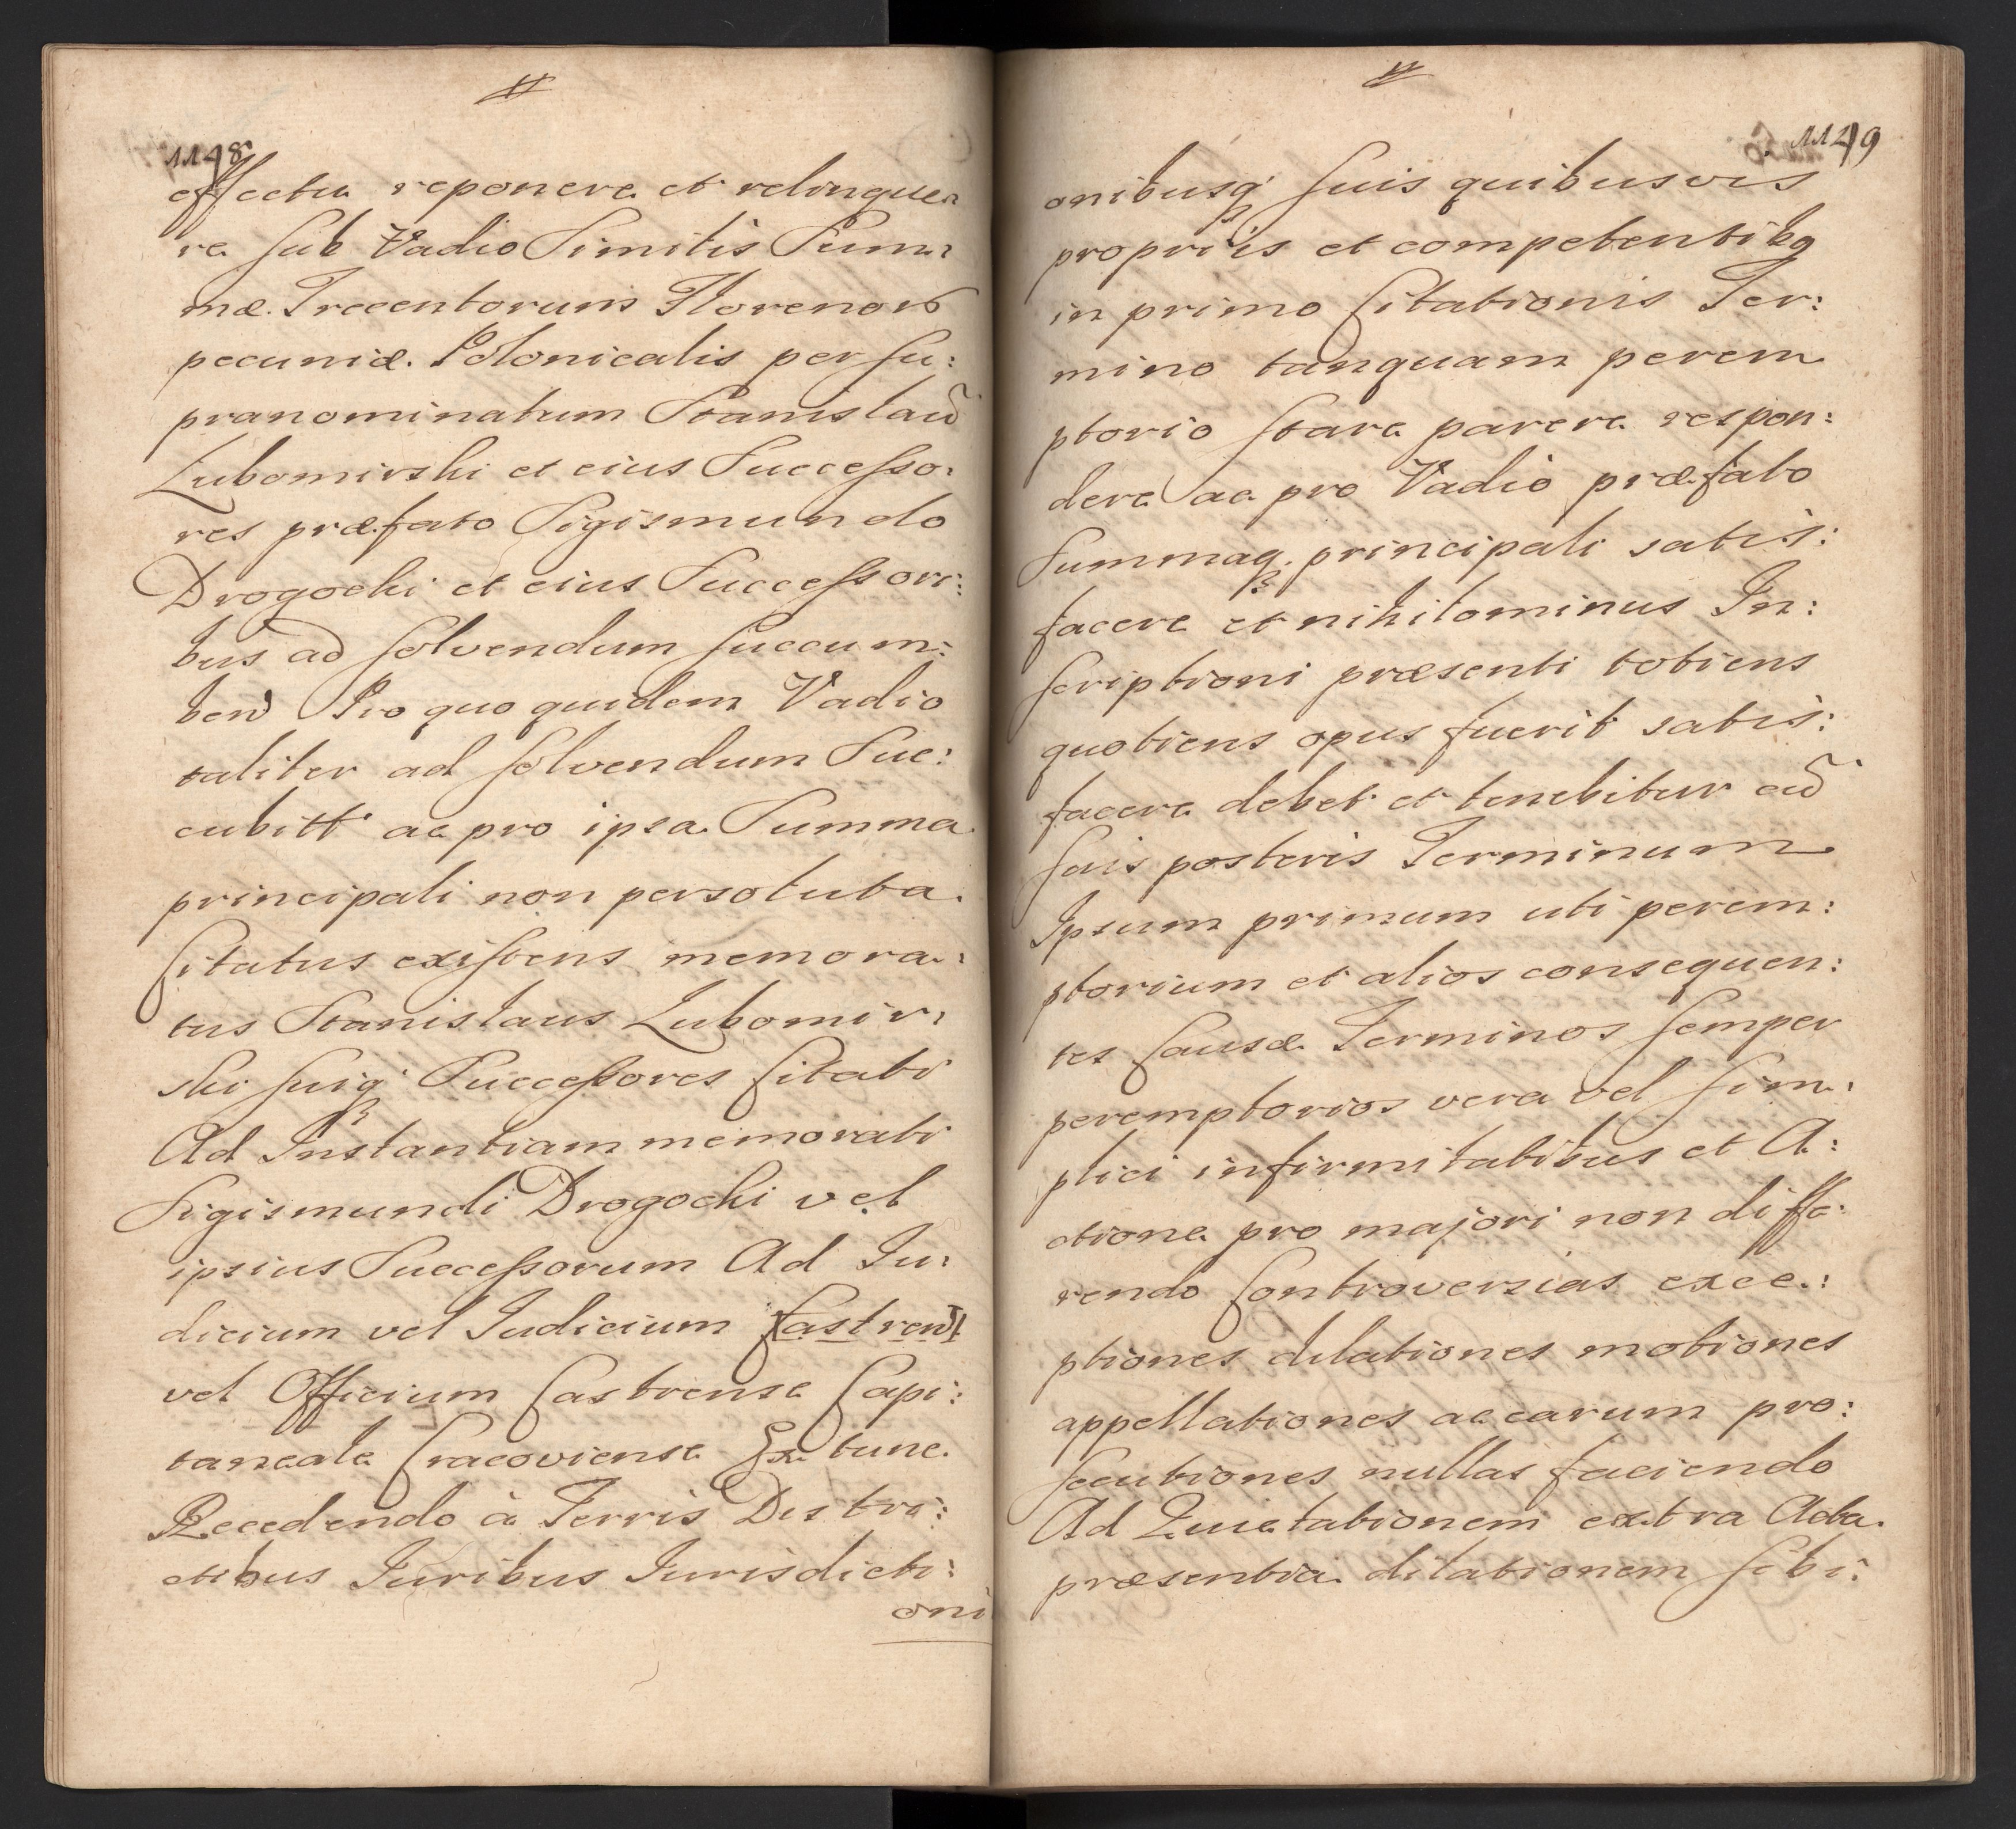 1148
effectu reponere et relinque:
re sub Vadio Similis Sum:
mæ Trecentorum Florenor
pecuniæ Polonicalis per su:
pranominatum Stanislaū
Lubomirski et eius Successo:
res præfato Sigismundo
Drogocki et eius Successori:
bus ad solvendum succum:
ben Pro quo quidem Vadio
taliter ad solvendum Suc:
cubitt ac pro ipsa Summa
principali non persoluta
Citatus existens memora:
tus Stanislaus Lubomir:
ski suiq Successores Citati
Ad Instantiam memorati
Sigismundi Drogocki vel
ipsius Successorum Ad Iu:
dicium vel Iudicium Castren
vel Officium Castrense Capi:
taneale Cracoviense Ex tunc
Recedendo à Terris Distri:
ctibus Iuribus Iurisdicti:
oni
1149
onibusq suis quibusvis
propriis et competentibq
in primo Citationis Ter:
mino tanquam perem
ptorio stare parere respon:
dere ac pro Vadio præfato
Summaq principali satis:
facere et nihilominus In:
scriptioni præsenti totiens
quotiens opus fuerit satis:
facere debet et tenebitur cū
suis posteris Terminum
Ipsum primum uti perem:
ptorium et alios consequen:
tes Causæ Terminos semper
peremptorios vera vel sim:
plici infirmitatibus et A:
ctione pro majori non diffe:
rendo Controversias exce:
ptiones dilationes motiones
appellationes ac earum pro:
secutiones nullas faciendo
Ad Quietationem extra Acta
præsentia dilationem sibi: